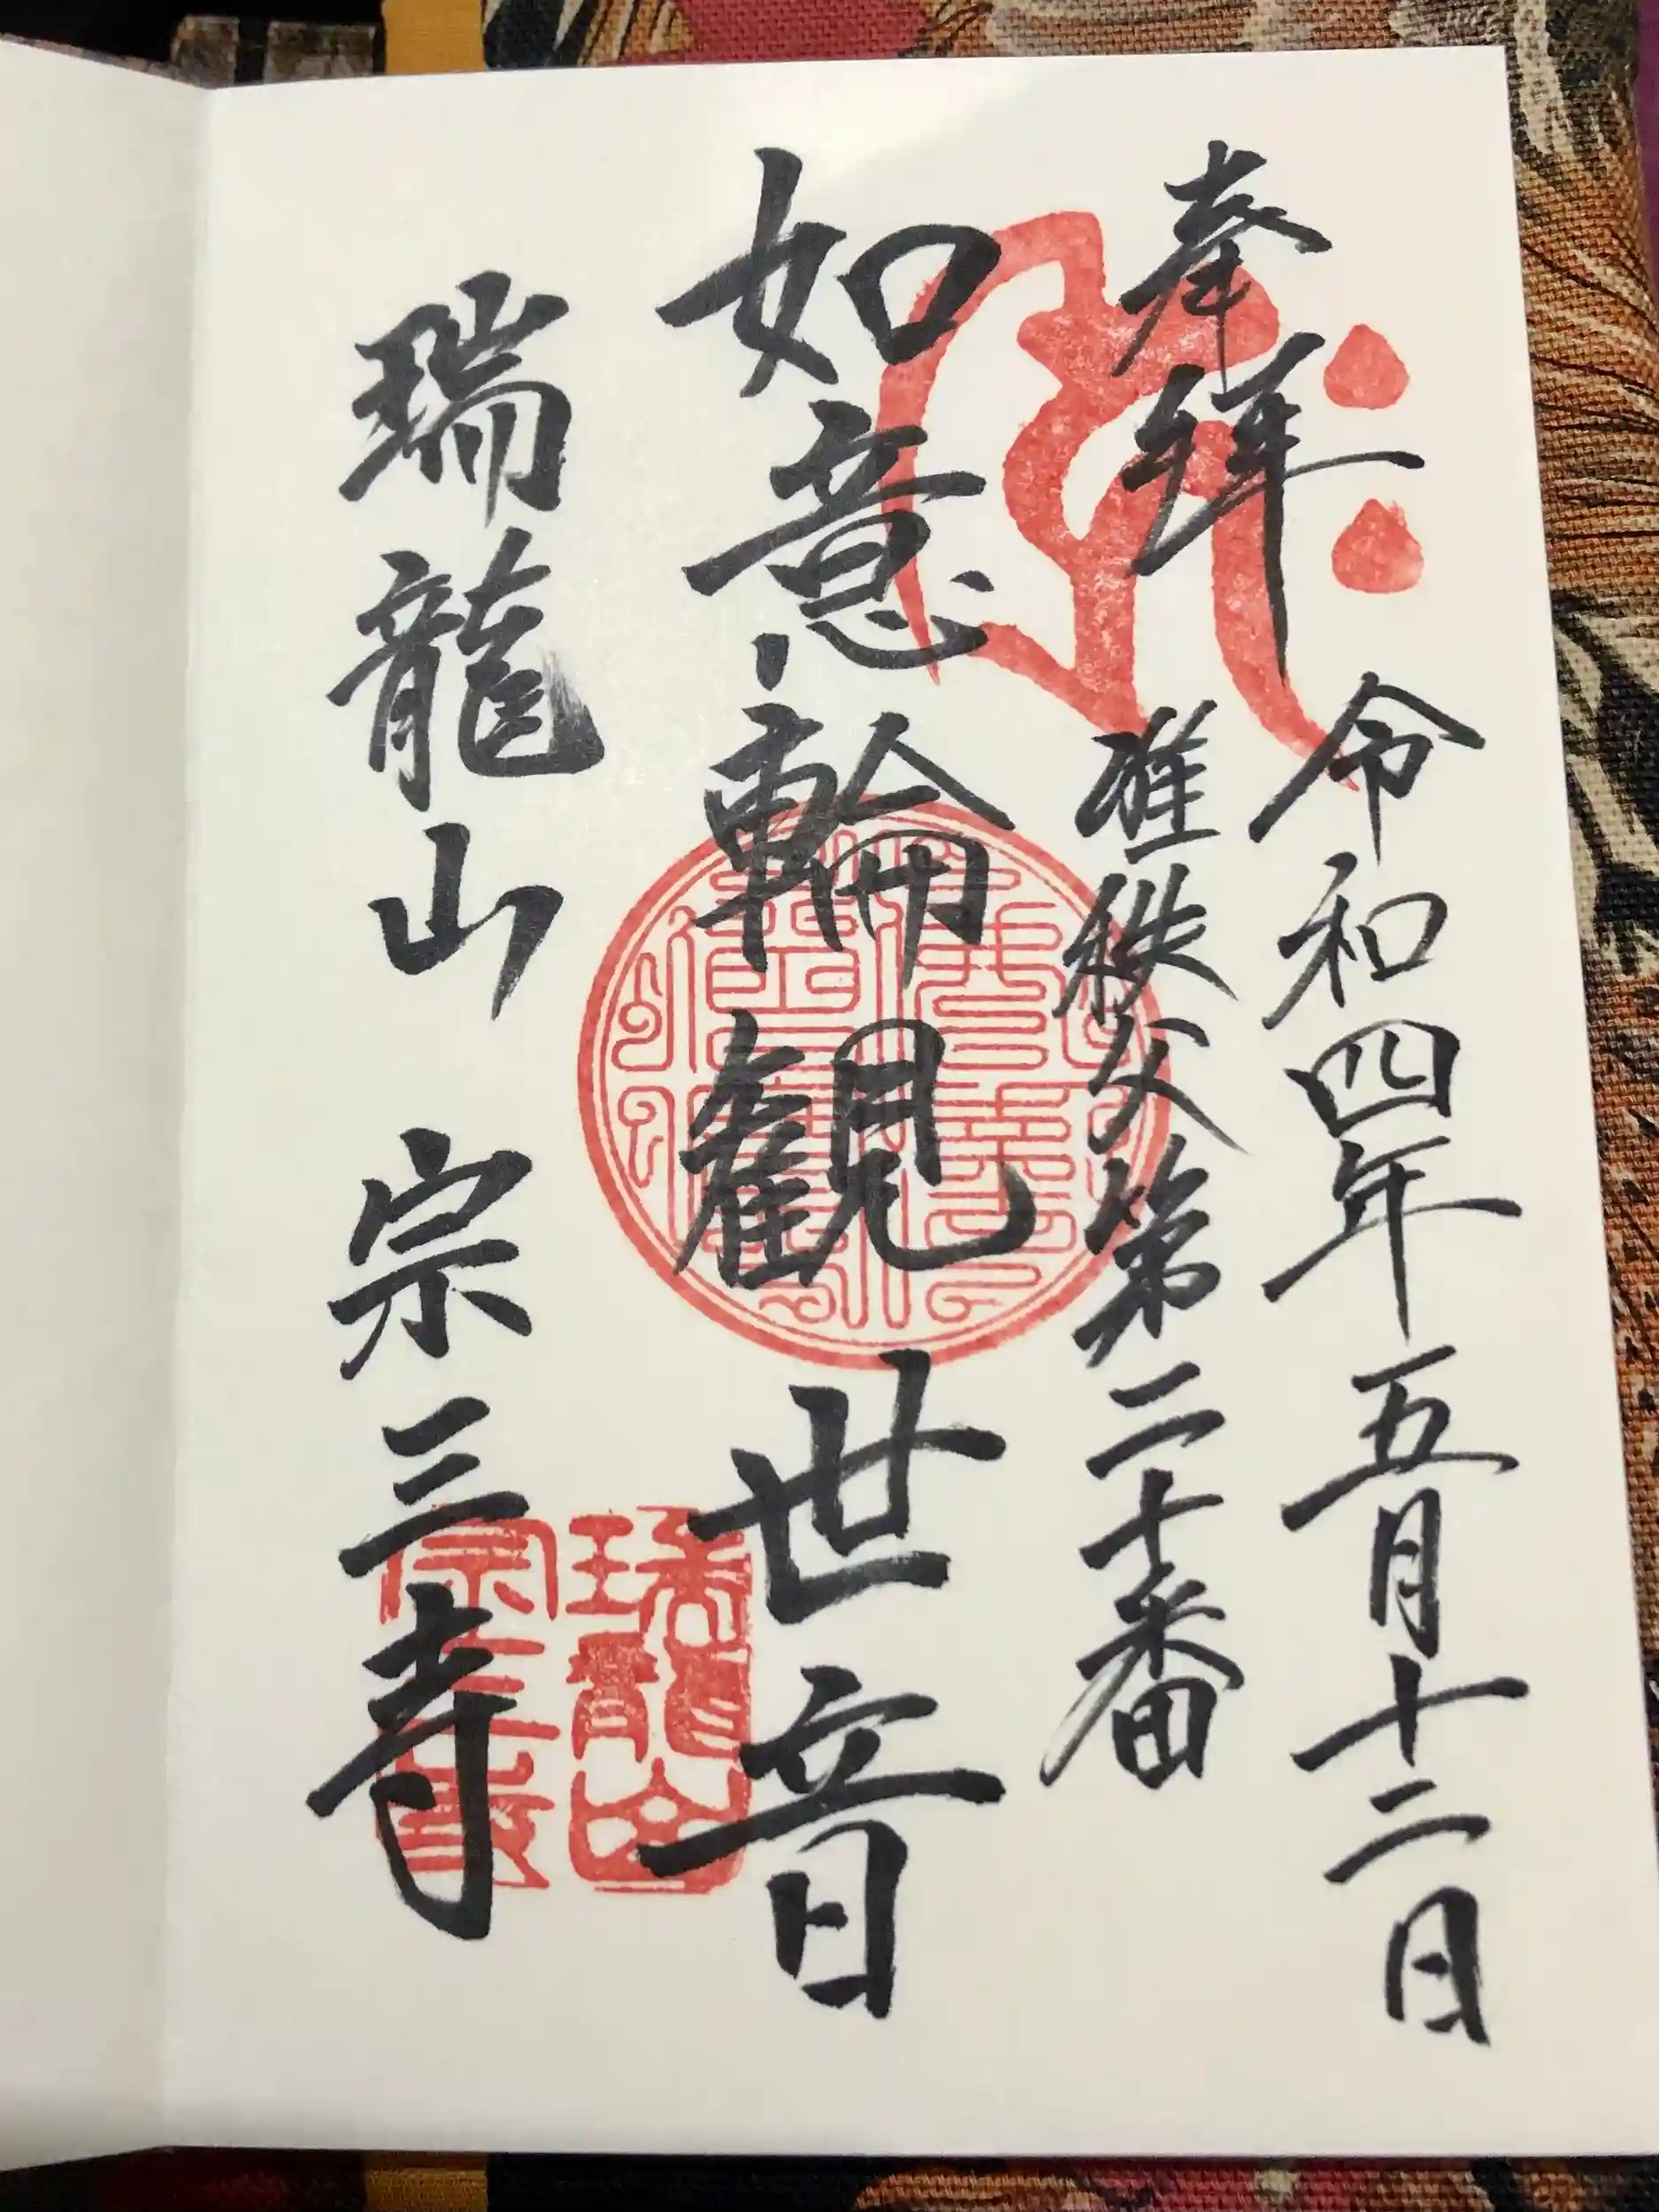 奉拝
令和四年五月十二日
准秩父第二十番
如意輪観世音
瑞龍山 宗三寺
瑞龍山
宗三寺